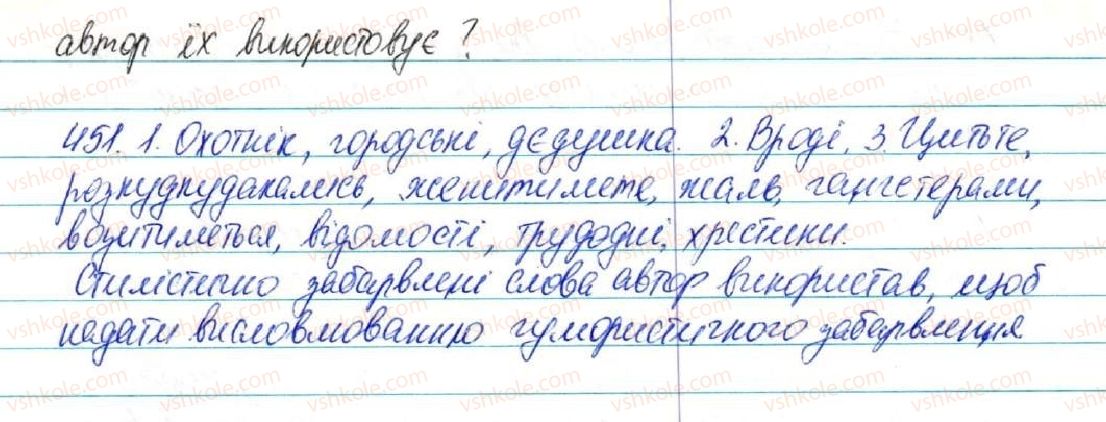 автор їх використовує?
451. 1. Охотнік, городські, дєдушка. 2. Вроді, 3. Цитьте,
розкудкудакались, женитимете, жаль, гангстерами,
возитиметься, відомості, трудодні, хрестики.
Стилістично забарвлені слова автор використав, щоб
надати висловлюванню гумористичного забарвлення